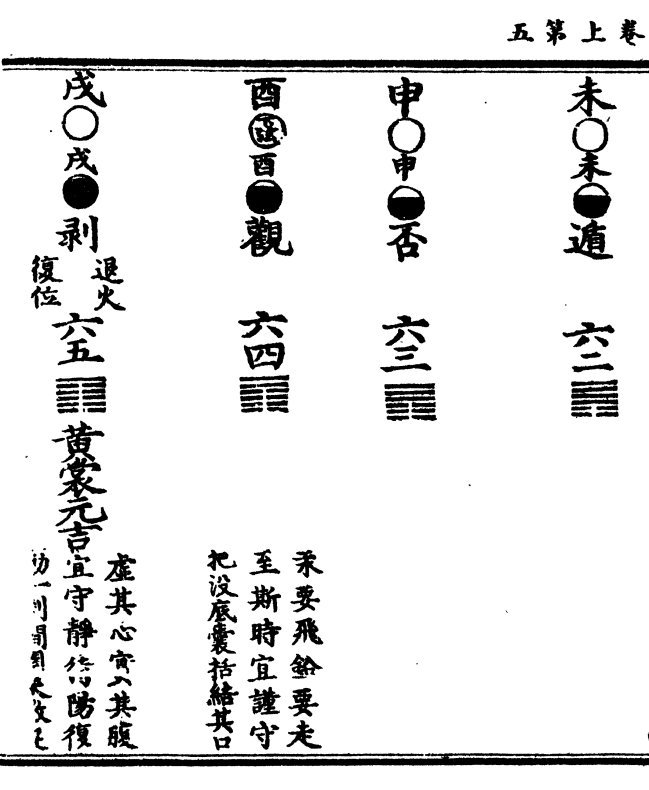 卷上第五
未
未
遁
六二
申
申
否
六三
酉
酉
觀
六四
汞要飛鉛要走
至斯時宜謹守
把没底囊括結其口
戌
戌
剥
退火
復位
六五
黄裳元吉
虚其心實入其腹
宜守靜待陽復